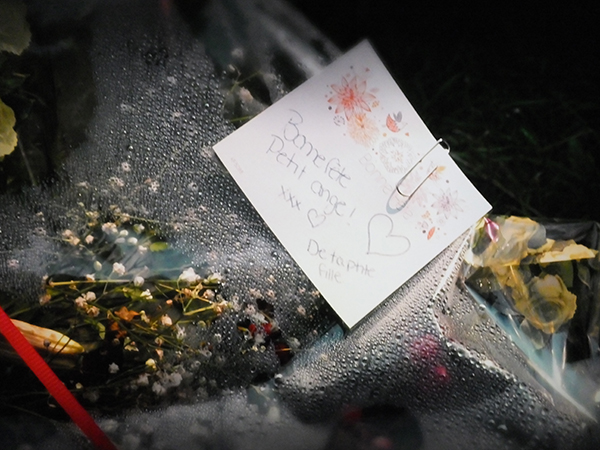 Bonne fête
Petit ange!
xxx
De ta ptite
fille